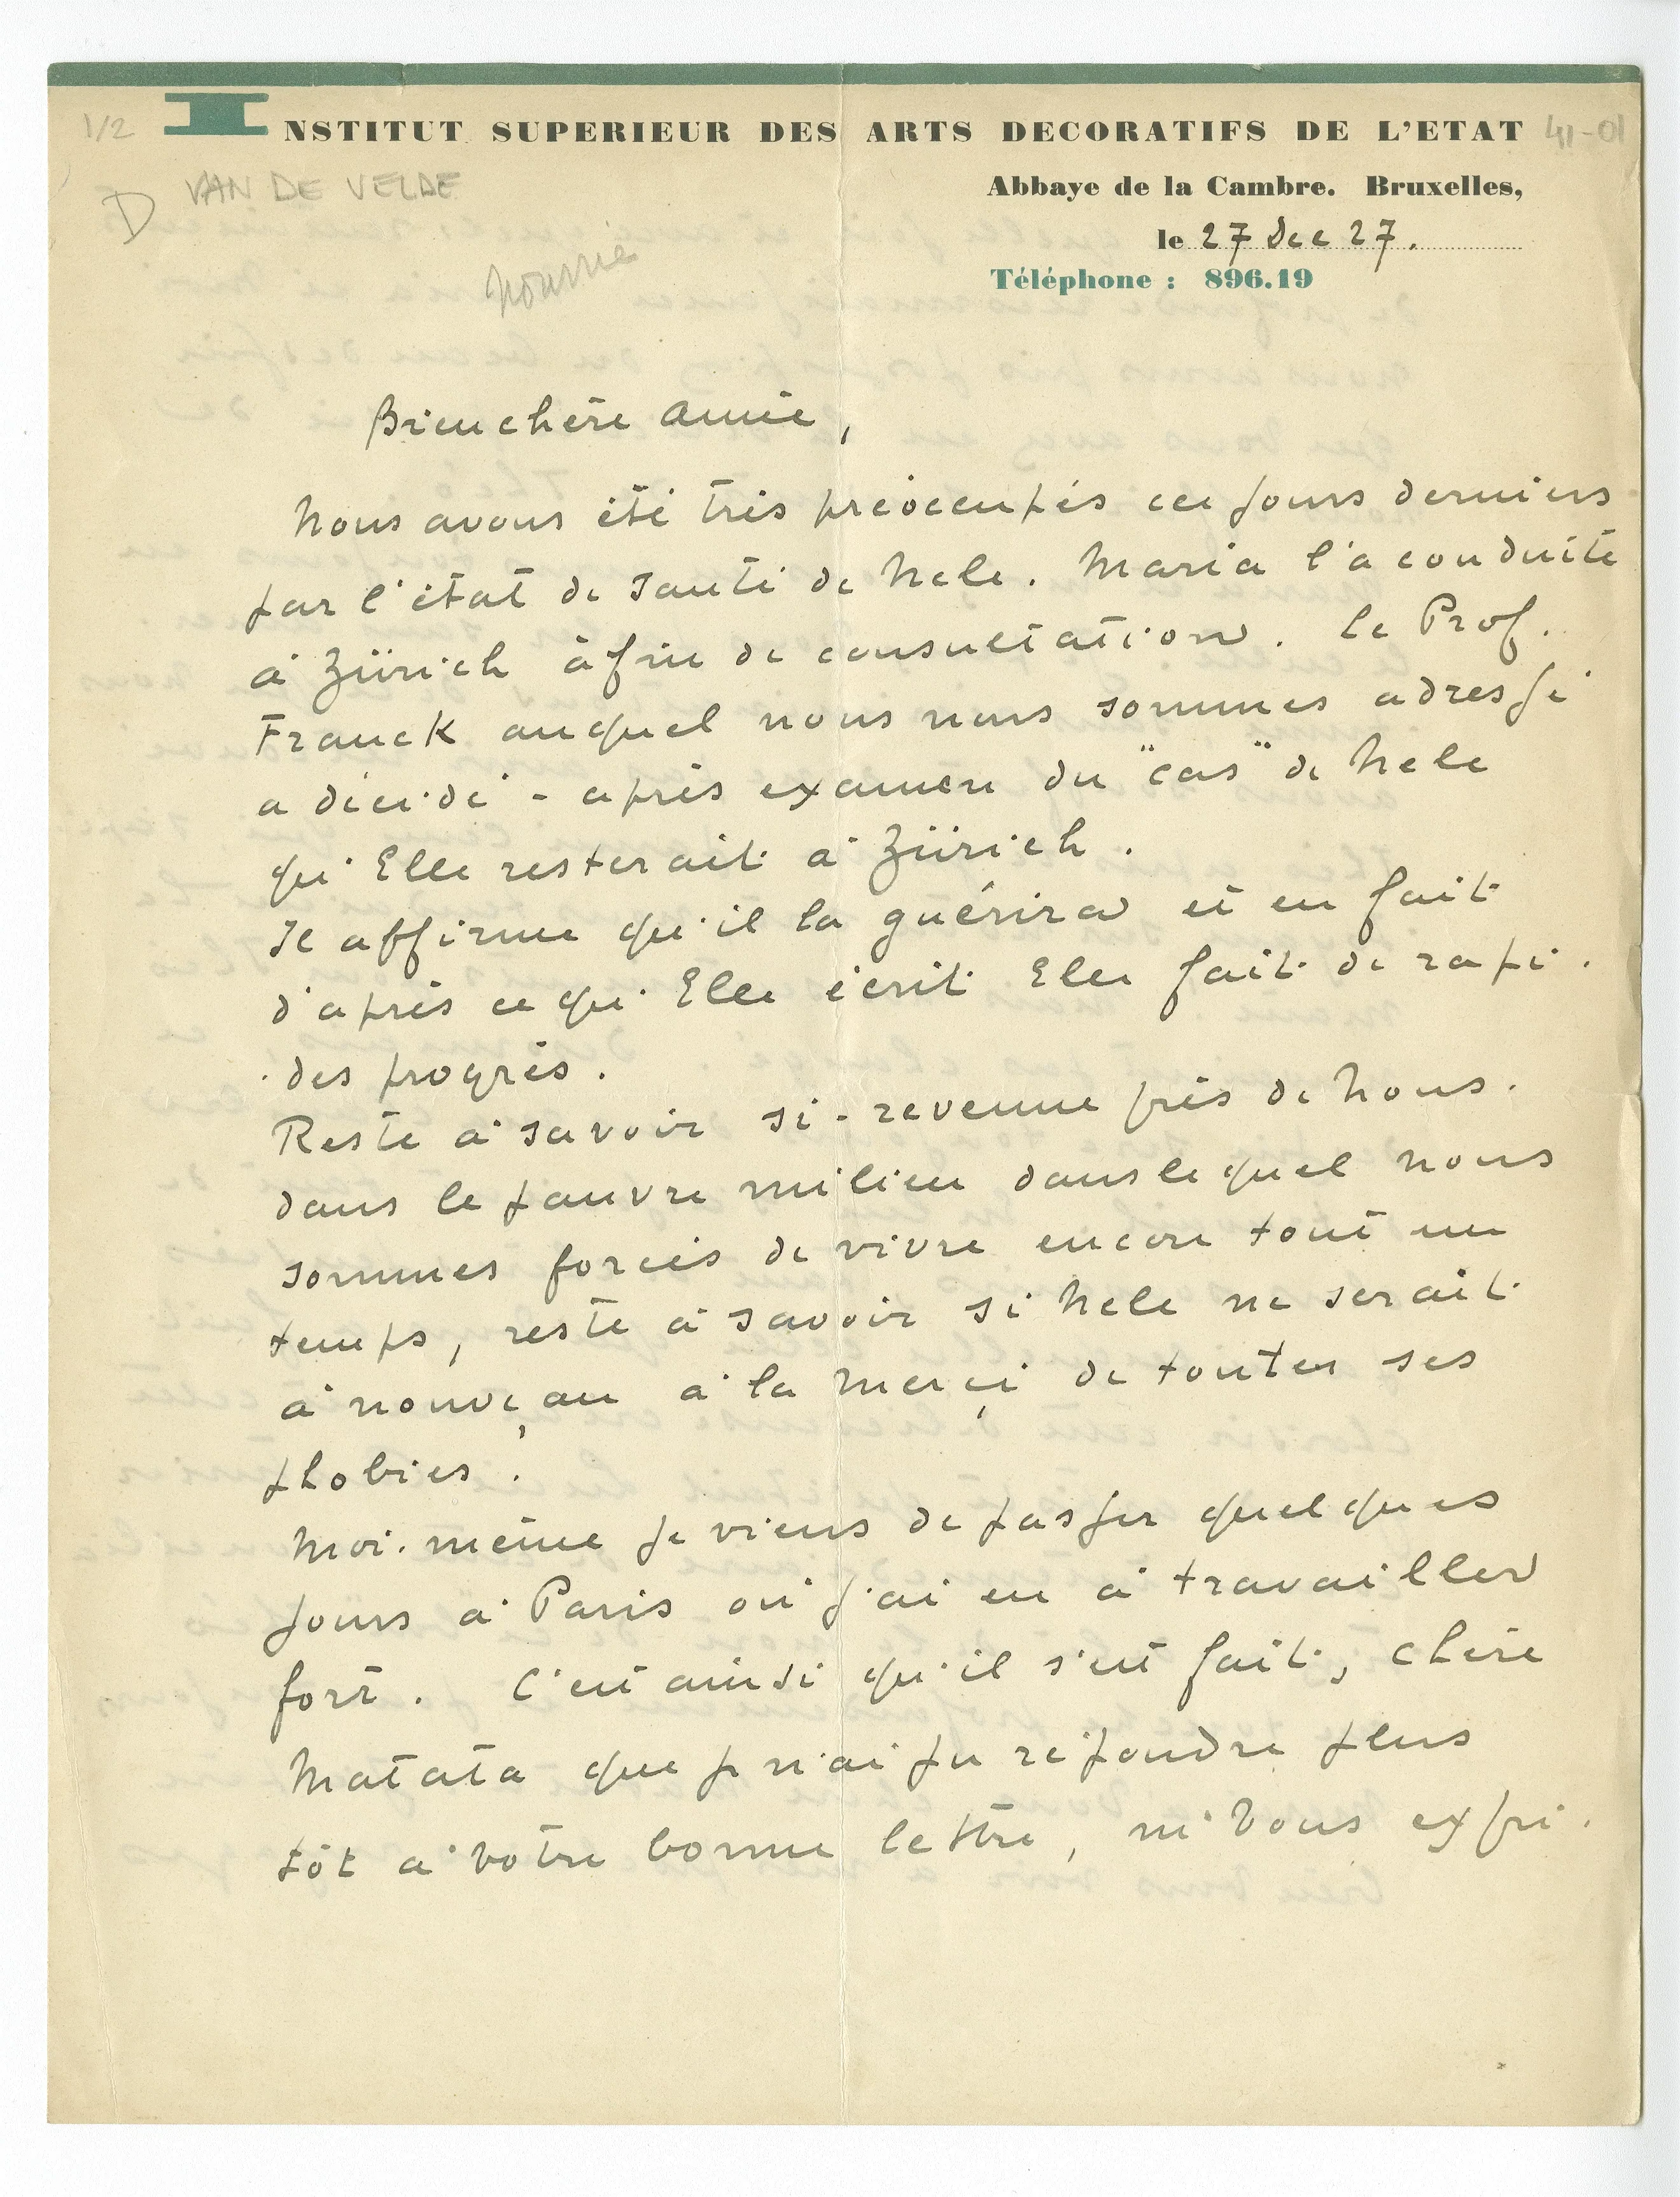 1/2
INSTITUT SUPERIEUR DES ARTS DECORATIFS DE L'ETAT 41-01
D VAN DE VELDE
Abbaye de la Cambre. Bruxelles,
le 27 Dec 27.
Téléphone : 896.19
Bien chère amie,
Nous avons été très préoccupés ces jours derniers
par l'état de santé de Nele. Maria l'a conduite
à Zürich à fin de consultation. Le Prof.
Franck auquel nous nous sommes adressé
a décidé - après examen du "cas" de Nele
qu'Elle resterait à Zürich.
Il affirme qu'il la guérira et en fait
d'après ce qu'Elle écrit Elle fait de rapi-
-des progrès.
Reste à savoir si - revenue près de Nous -
dans le pauvre milieu dans lequel nous
sommes forcés de vivre encore tout un
temps, reste à savoir si Nele ne serait
à nouveau à la merci de toutes ses
phobies.
Moi-même je viens de passer quelques
jours à Paris où j'ai eu à travailler
fort. C'est ainsi qu'il s'est fait, chère
Matata que je n'ai pu répondre plus
tôt à votre bonne lettre, ni Vous expri-